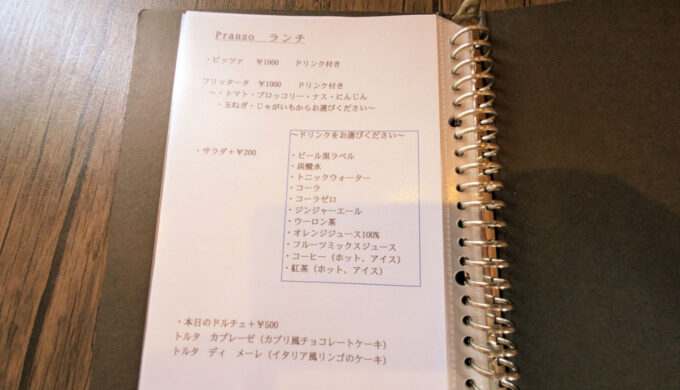 Pranzo ランチ
・ピッツァ ￥1000 ドリンク付き
フリッタータ ￥1000 ドリンク付き
～・トマト・ブロッコリー・ナス・にんじん
・玉ねぎ・じゃがいもからお選びください～
～ドリンクをお選びください～
・サラダ＋￥200
・ビール黒ラベル
・炭酸水
・トニックウォーター
・コーラ
・コーラゼロ
・ジンジャーエール
・ウーロン茶
・オレンジジュース100%
・フルーツミックスジュース
・コーヒー（ホット、アイス）
・紅茶（ホット、アイス）
・本日のドルチェ＋￥500
トルタ カプレーゼ（カプリ風チョコレートケーキ）
トルタ ディ メーレ（イタリア風リンゴのケーキ）